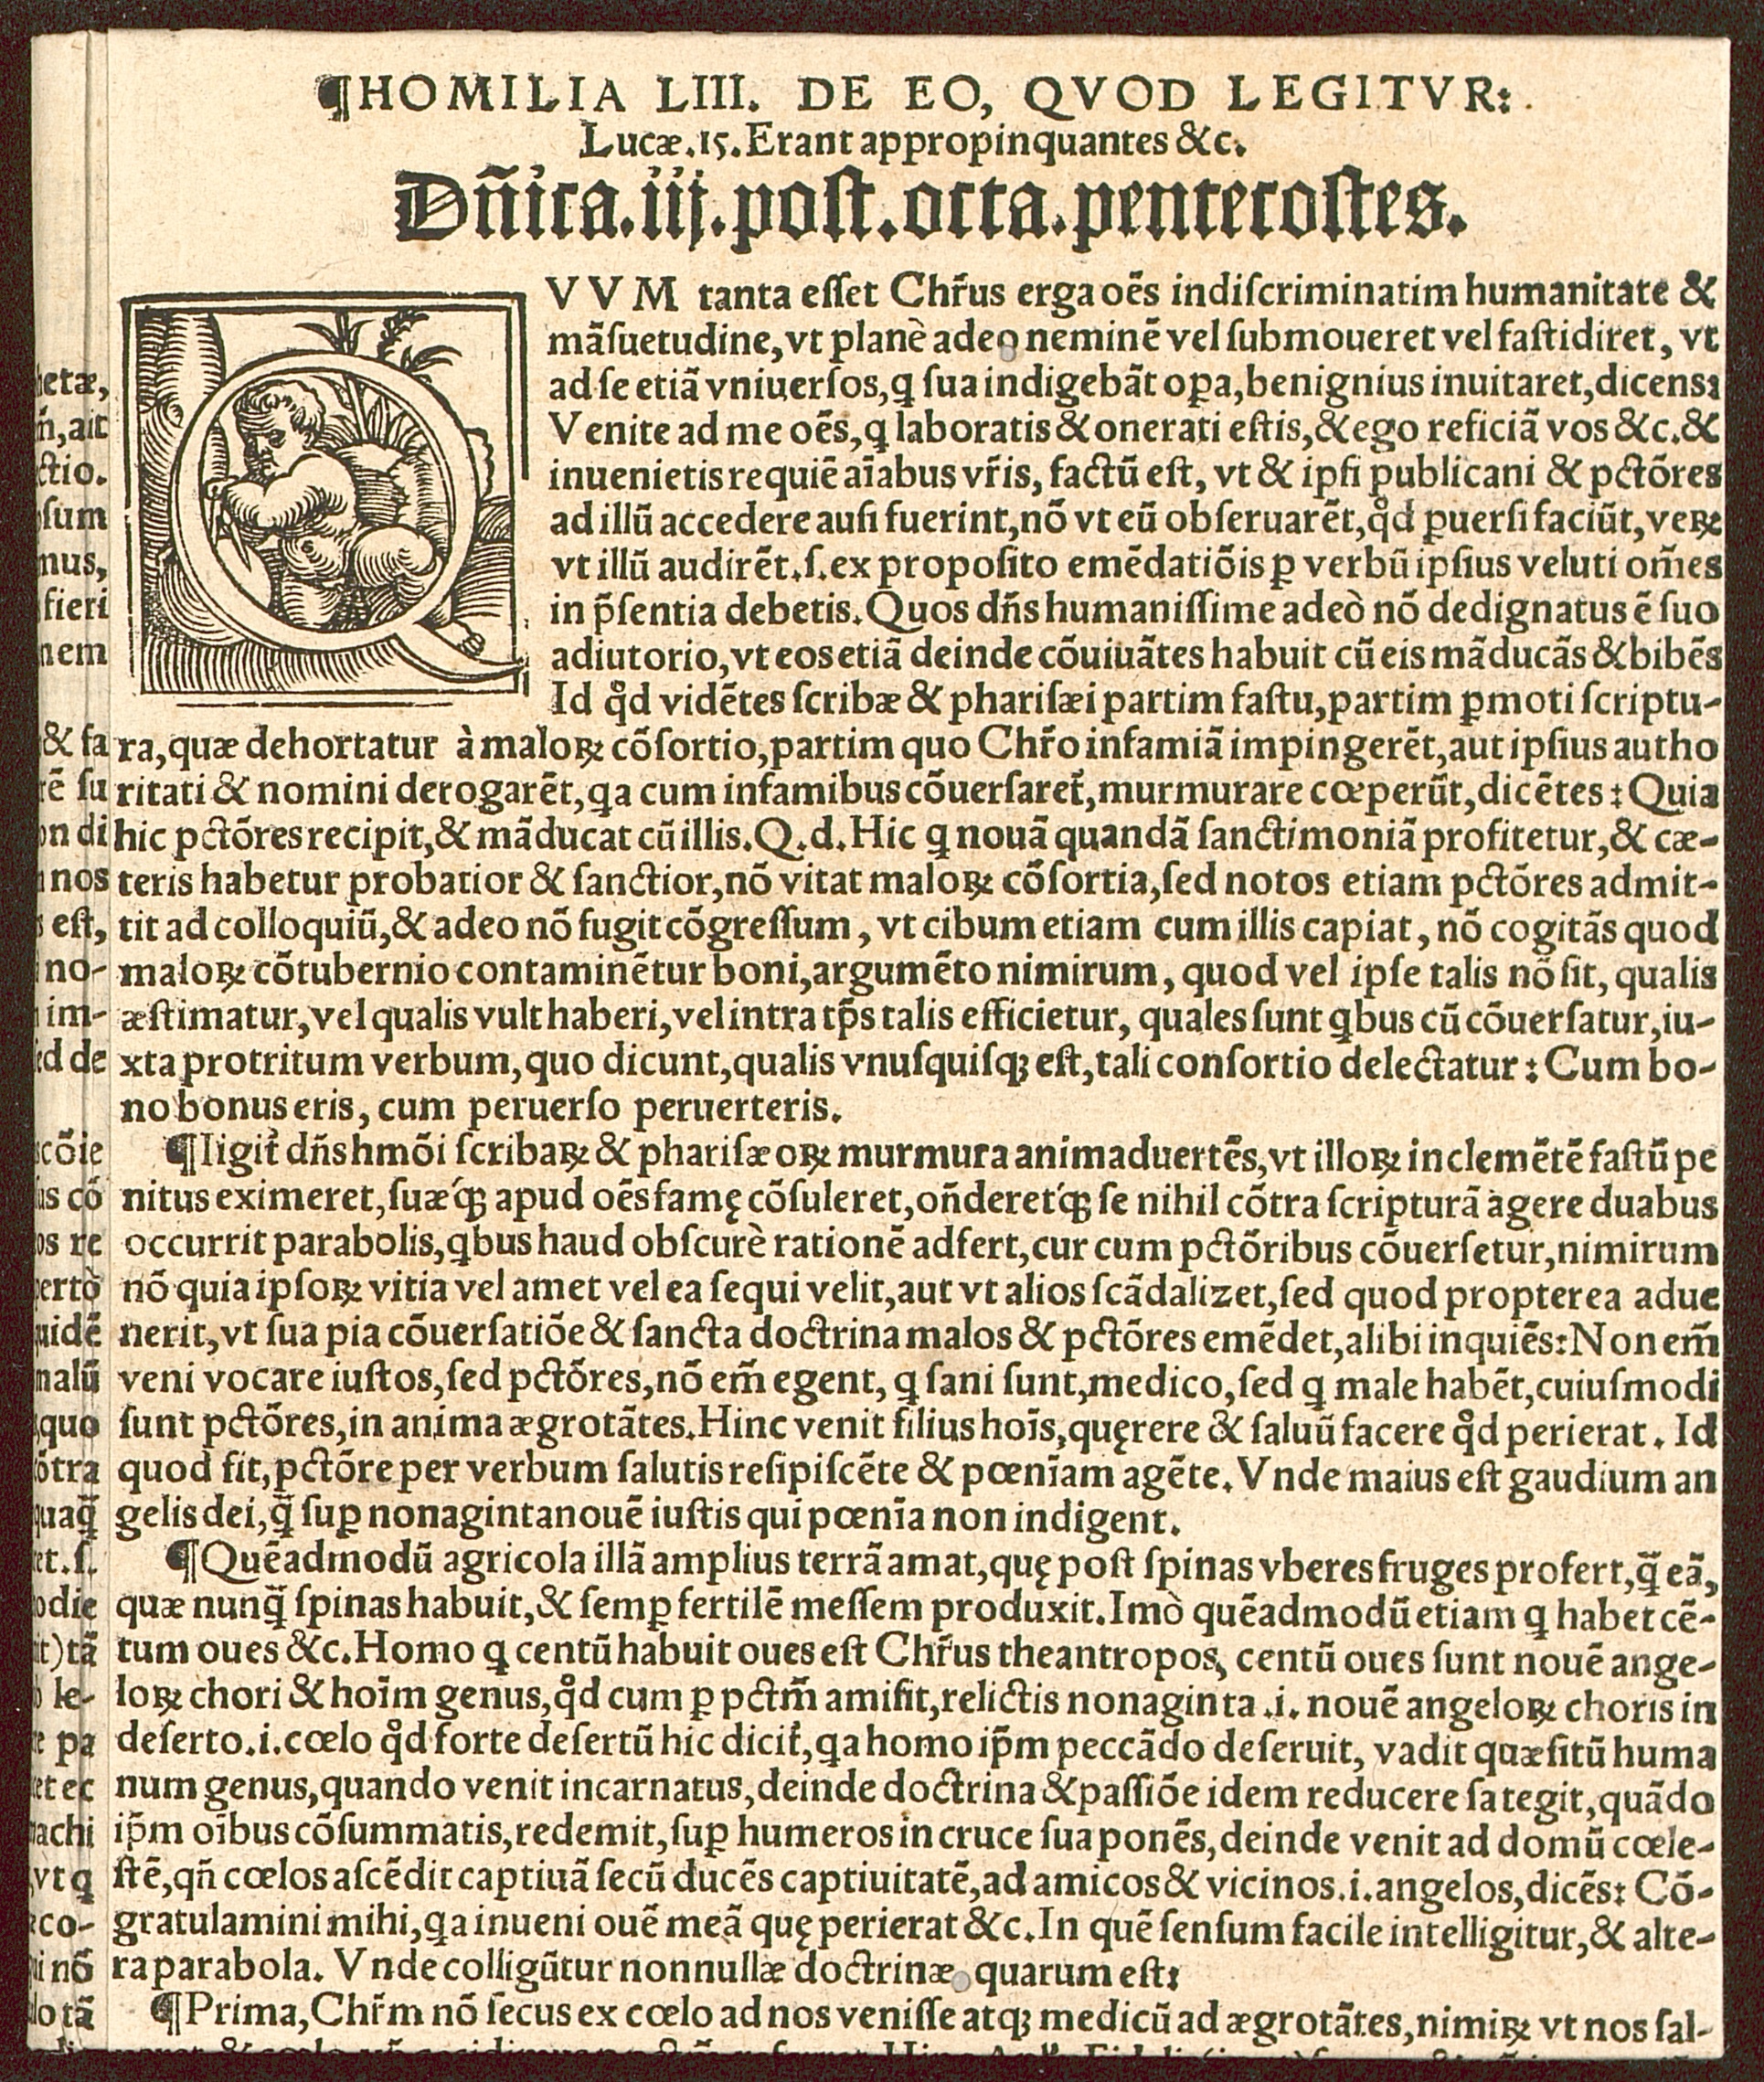 ¶HOMILIA LIII. DE EO, QVOD LEGITVR:
Lucæ.15. Erant appropinquantes &c.
Dñica.iij.post.octa.pentecostes.
QVVM tanta esset Chr̃us erga oẽs indiscriminatim humanitate &
mãsuetudine, vt planè adeo neminẽ vel submoueret vel fastidiret, vt
ad se etiã vniuersos, ꝗ sua indigebãt oꝑa, benignius inuitaret, dicens:
Venite ad me oẽs, ꝗ laboratis & onerati estis, & ego reficiã vos &c. &
inuenietis requiẽ aĩabus vr̃is, factũ est, vt & ipsi publicani & pctõres
ad illũ accedere ausi fuerint, nõ vt eũ obseruarẽt, qͦd ꝑuersi faciũt, veꝝ
vt illũ audirẽt.s.ex proposito emẽdatiõis ꝑ verbũ ipsius veluti om̃es
in p̃sentia debetis. Quos dñs humanissime adeò nõ dedignatus ẽ suo
adiutorio, vt eos etiã deinde cõuiuãtes habuit cũ eis mãducãs & bibẽs
Id qͦd vidẽtes scribæ & pharisæi partim fastu, partim ꝑmoti scriptu-
ra, quæ dehortatur à maloꝝ cõsortio, partim quo Chr̃o infamiã impingerẽt, aut ipsius autho
ritati & nomini derogarẽt, ꝗa cum infamibus cõuersaret̃, murmurare cœperũt, dicẽtes: Quia
hic pctõres recipit, & mãducat cũ illis. Q.d. Hic ꝗ nouã quandã sanctimoniã profitetur, & cæ-
teris habetur probatior & sanctior, nõ vitat maloꝝ cõsortia, sed notos etiam pctõres admit-
tit ad colloquiũ, & adeo nõ fugit cõgressum, vt cibum etiam cum illis capiat, nõ cogitãs quod
maloꝝ cõtubernio contaminẽtur boni, argumẽto nimirum, quod vel ipse talis nõ sit, qualis
æstimatur, vel qualis vult haberi, vel intra tp̃s talis efficietur, quales sunt ꝗbus cũ cõuersatur, iu-
xta protritum verbum, quo dicunt, qualis vnusquisqꝫ est, tali consortio delectatur: Cum bo-
no bonus eris, cum peruerso peruerteris.
¶Iigit̃ dñs hmõi scribaꝝ & pharisæoꝝ murmura animaduertẽs, vt illoꝝ inclemẽtẽ fastũ pe
nitus eximeret, suæqꝫ apud oẽs famę cõsuleret, oñderetqꝫ se nihil cõtra scripturã agere duabus
occurrit parabolis, ꝗbus haud obscurè rationẽ adfert, cur cum pctõribus cõuersetur, nimirum
nõ quia ipsoꝝ vitia vel amet vel ea sequi velit, aut vt alios scãdalizet, sed quod propterea adue
nerit, vt sua pia cõuersatiõe & sancta doctrina malos & pctõres emẽdet, alibi inquiẽs: Non em̃
veni vocare iustos, sed pctõres, nõ em̃ egent, ꝗ sani sunt, medico, sed ꝗ male habẽt, cuiusmodi
sunt pctõres, in anima ægrotãtes. Hinc venit filius hoĩs, quęrere & saluũ facere qͦd perierat. Id
quod fit, pctõre per verbum salutis resipiscẽte & pœnĩam agẽte. Vnde maius est gaudium an
gelis dei, q̃ suꝑ nonagintanouẽ iustis qui pœnĩa non indigent.
¶Quẽadmodũ agricola illã amplius terrã amat, quę post spinas vberes fruges profert, q̃ eã,
quæ nunq̃ spinas habuit, & semꝑ fertilẽ messem produxit. Imò quẽadmodũ etiam ꝗ habet cẽ-
tum oues &c. Homo ꝗ centũ habuit oues est Chr̃us theantropos, centũ oues sunt nouẽ ange-
loꝝ chori & hoĩm genus, qͦd cum ꝑ pctm̃ amisit, relictis nonaginta .i. nouẽ angeloꝝ choris in
deserto.i.cœlo qͦd forte desertũ hic dicit̃, ꝗa homo ip̃m peccãdo deseruit, vadit quæsitũ huma
num genus, quando venit incarnatus, deinde doctrina & passiõe idem reducere sategit, quãdo
ip̃m oĩbus cõsummatis, redemit, suꝑ humeros in cruce sua ponẽs, deinde venit ad domũ cœle-
stẽ, qñ cœlos ascẽdit captiuã secũ ducẽs captiuitatẽ, ad amicos & vicinos.i.angelos, dicẽs: Cõ-
gratulamini mihi, ꝗa inueni ouẽ meã quę perierat &c. In quẽ sensum facile intelligitur, & alte-
ra parabola. Vnde colligũtur nonnullæ doctrinæ quarum est:
¶Prima, Chr̃m nõ secus ex cœlo ad nos venisse atqꝫ medicũ ad ægrotãtes, nimiꝝ vt nos sal-